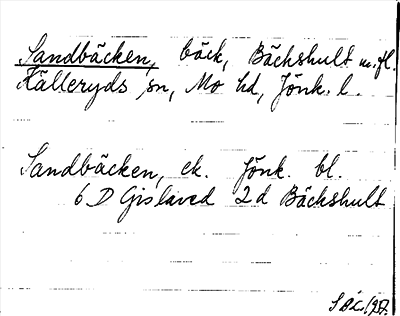 Sandbäcken, bäck, Bäckshult m.fl.
Källeryds sn, Mo hd, Jönk. l.
Sandbäcken, ek. Jönk. bl.
6 D Gislaved 2 d Bäckshult